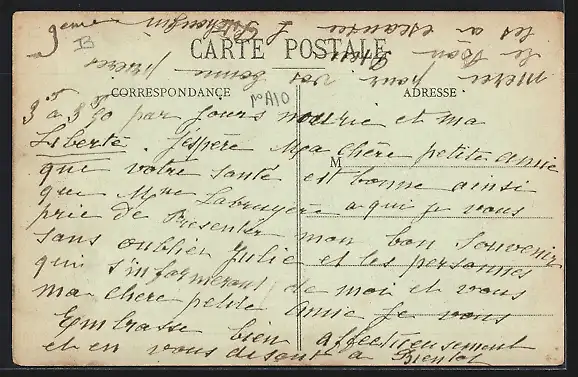 CARTE POSTALE
CORRESPONDANCE
ADRESSE
M
B
3 à 3 50 par jours nourrie et ma
Liberté. J'espère Ma chère petite amie
que votre santé est bonne ainsi
que Mme Labruyère a qui je vous
prie de Presenter mon bon Souvenir
sans oublier Julie et les personnes
qui s'informeront de moi et vous
ma chere petite amie Je vous
Embrasse bien affectueusement
et en vous disant a Bientot
merci pour vos bonne prières
le Bon Dieu
les a